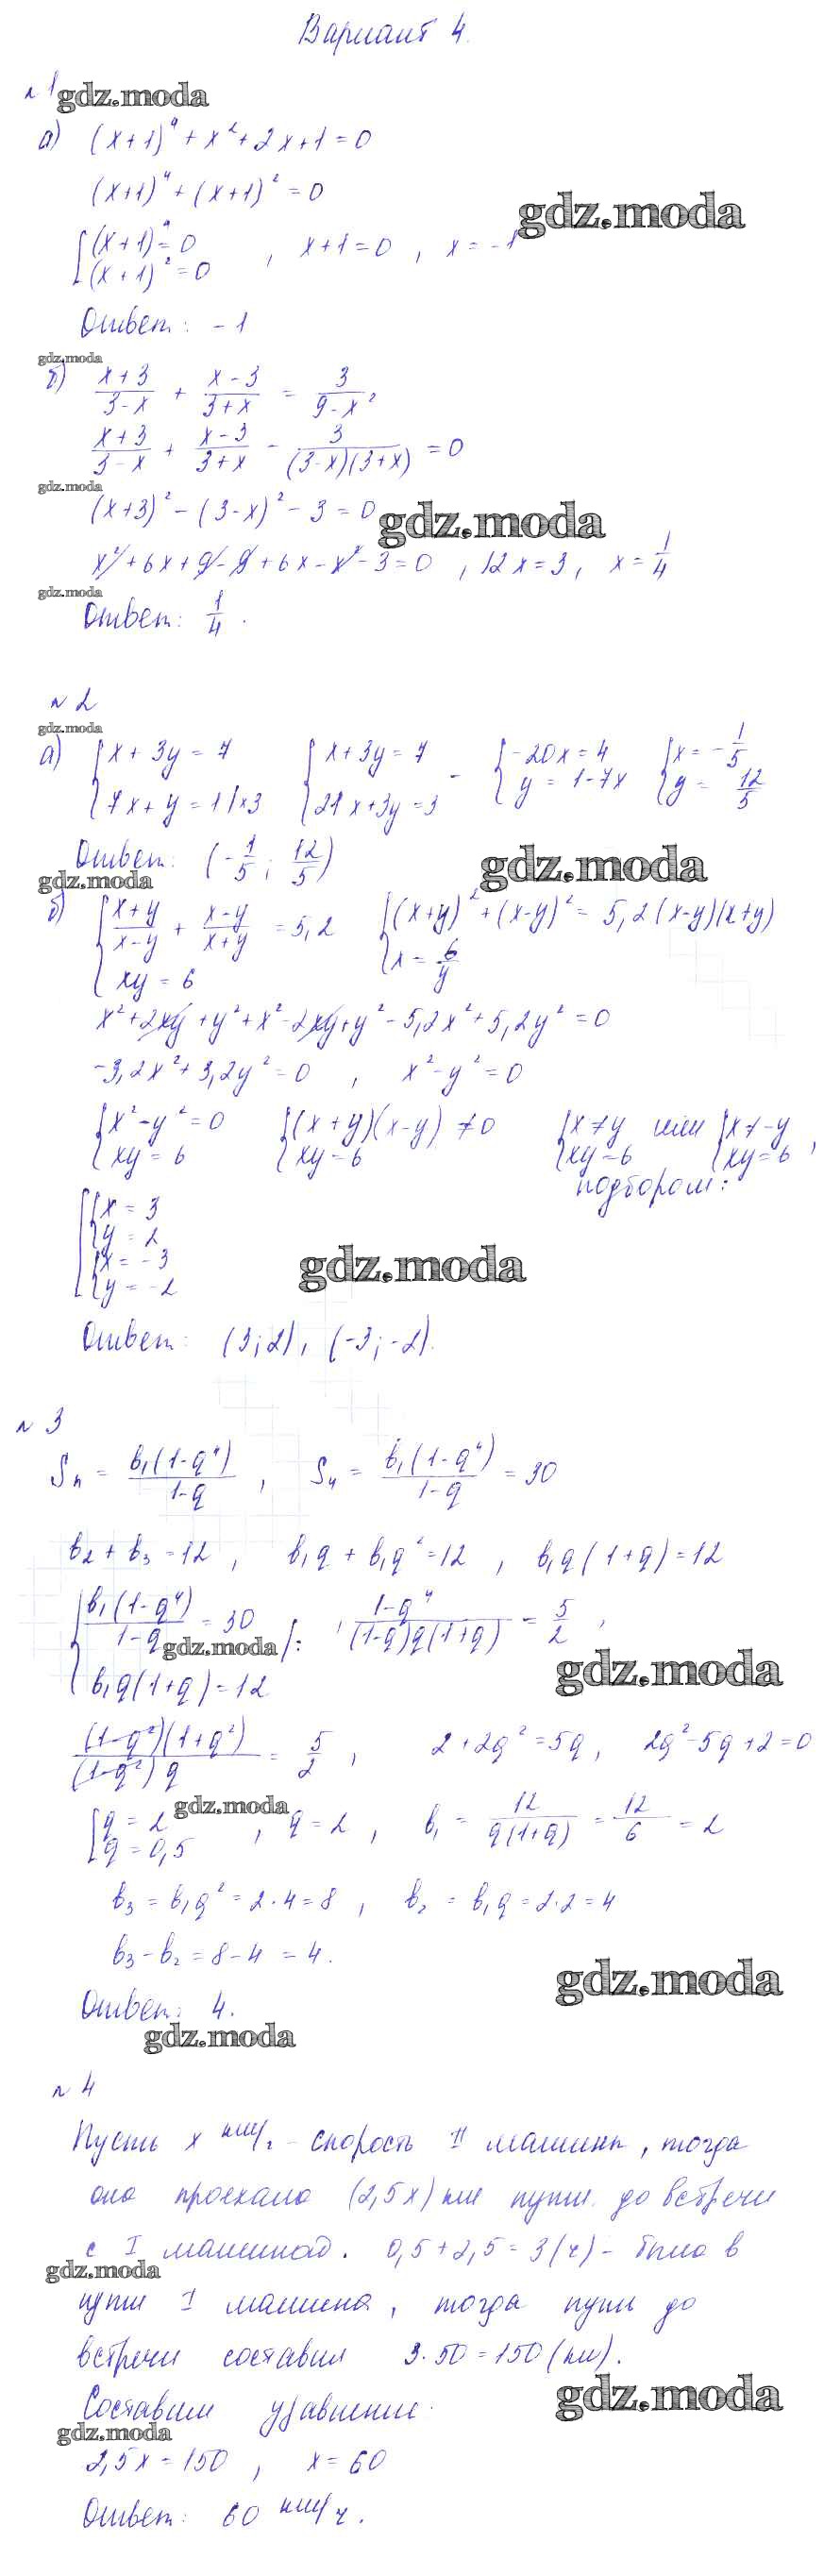 Вариант 4.
№ 1
gdz.moda
а) (x+1)⁴ + x² + 2x + 1 = 0
(x+1)⁴ + (x+1)² = 0
gdz.moda
[(x+1)⁴ = 0
(x+1)² = 0 , x+1 = 0 , x = -1
Ответ: -1
gdz.moda
б) (x+3)/(3-x) + (x-3)/(3+x) = 3/(9-x²)
(x+3)/(3-x) + (x-3)/(3+x) - 3/((3-x)(3+x)) = 0
gdz.moda
(x+3)² - (3-x)² - 3 = 0
gdz.moda
x² + 6x + 9 - 9 + 6x - x² - 3 = 0 , 12x = 3 , x = 1/4
gdz.moda
Ответ: 1/4 .
№ 2
gdz.moda
а) {x + 3y = 7 {x + 3y = 7 - {-20x = 4 {x = -1/5
7x + y = 1 |×3 21x + 3y = 3 y = 1-7x y = 12/5
Ответ: (-1/5 ; 12/5)
gdz.moda
gdz.moda
б) {(x+y)/(x-y) + (x-y)/(x+y) = 5,2 {(x+y)² + (x-y)² = 5,2(x-y)(x+y)
xy = 6 x = 6/y
x² + 2xy + y² + x² - 2xy + y² - 5,2x² + 5,2y² = 0
-3,2x² + 3,2y² = 0 , x² - y² = 0
{x² - y² = 0 {(x+y)(x-y) ≠ 0 {x ≠ y или {x ≠ -y
xy = 6 xy = 6 xy = 6 xy = 6 ,
подбором:
[{x = 3
y = 2
{x = -3
y = -2
gdz.moda
Ответ: (3;2), (-3;-2).
№ 3
Sn = b₁(1-q⁴)/(1-q) , S₄ = b₁(1-q⁴)/(1-q) = 30
b₂ + b₃ = 12 , b₁q + b₁q² = 12 , b₁q(1+q) = 12
{b₁(1-q⁴)/(1-q) = 30 |: , (1-q⁴)/((1-q)q(1+q)) = 5/2 ,
gdz.moda
gdz.moda
b₁q(1+q) = 12
(1-q²)(1+q²)/((1-q²)q) = 5/2 , 2 + 2q² = 5q , 2q² - 5q + 2 = 0
gdz.moda
[q = 2
q = 0,5 , q = 2 , b₁ = 12/(q(1+q)) = 12/6 = 2
b₃ = b₁q² = 2·4 = 8 , b₂ = b₁q = 2·2 = 4
b₃ - b₂ = 8 - 4 = 4.
gdz.moda
Ответ: 4.
gdz.moda
№ 4
Пусть x км/ч - скорость II машины, тогда
она проехала (2,5x) км пути до встречи
с I машиной. 0,5 + 2,5 = 3 (ч) - была в
gdz.moda
пути I машина, тогда путь до
встречи составил 3·50 = 150 (км).
gdz.moda
Составим уравнение:
gdz.moda
2,5x = 150 , x = 60
Ответ: 60 км/ч.